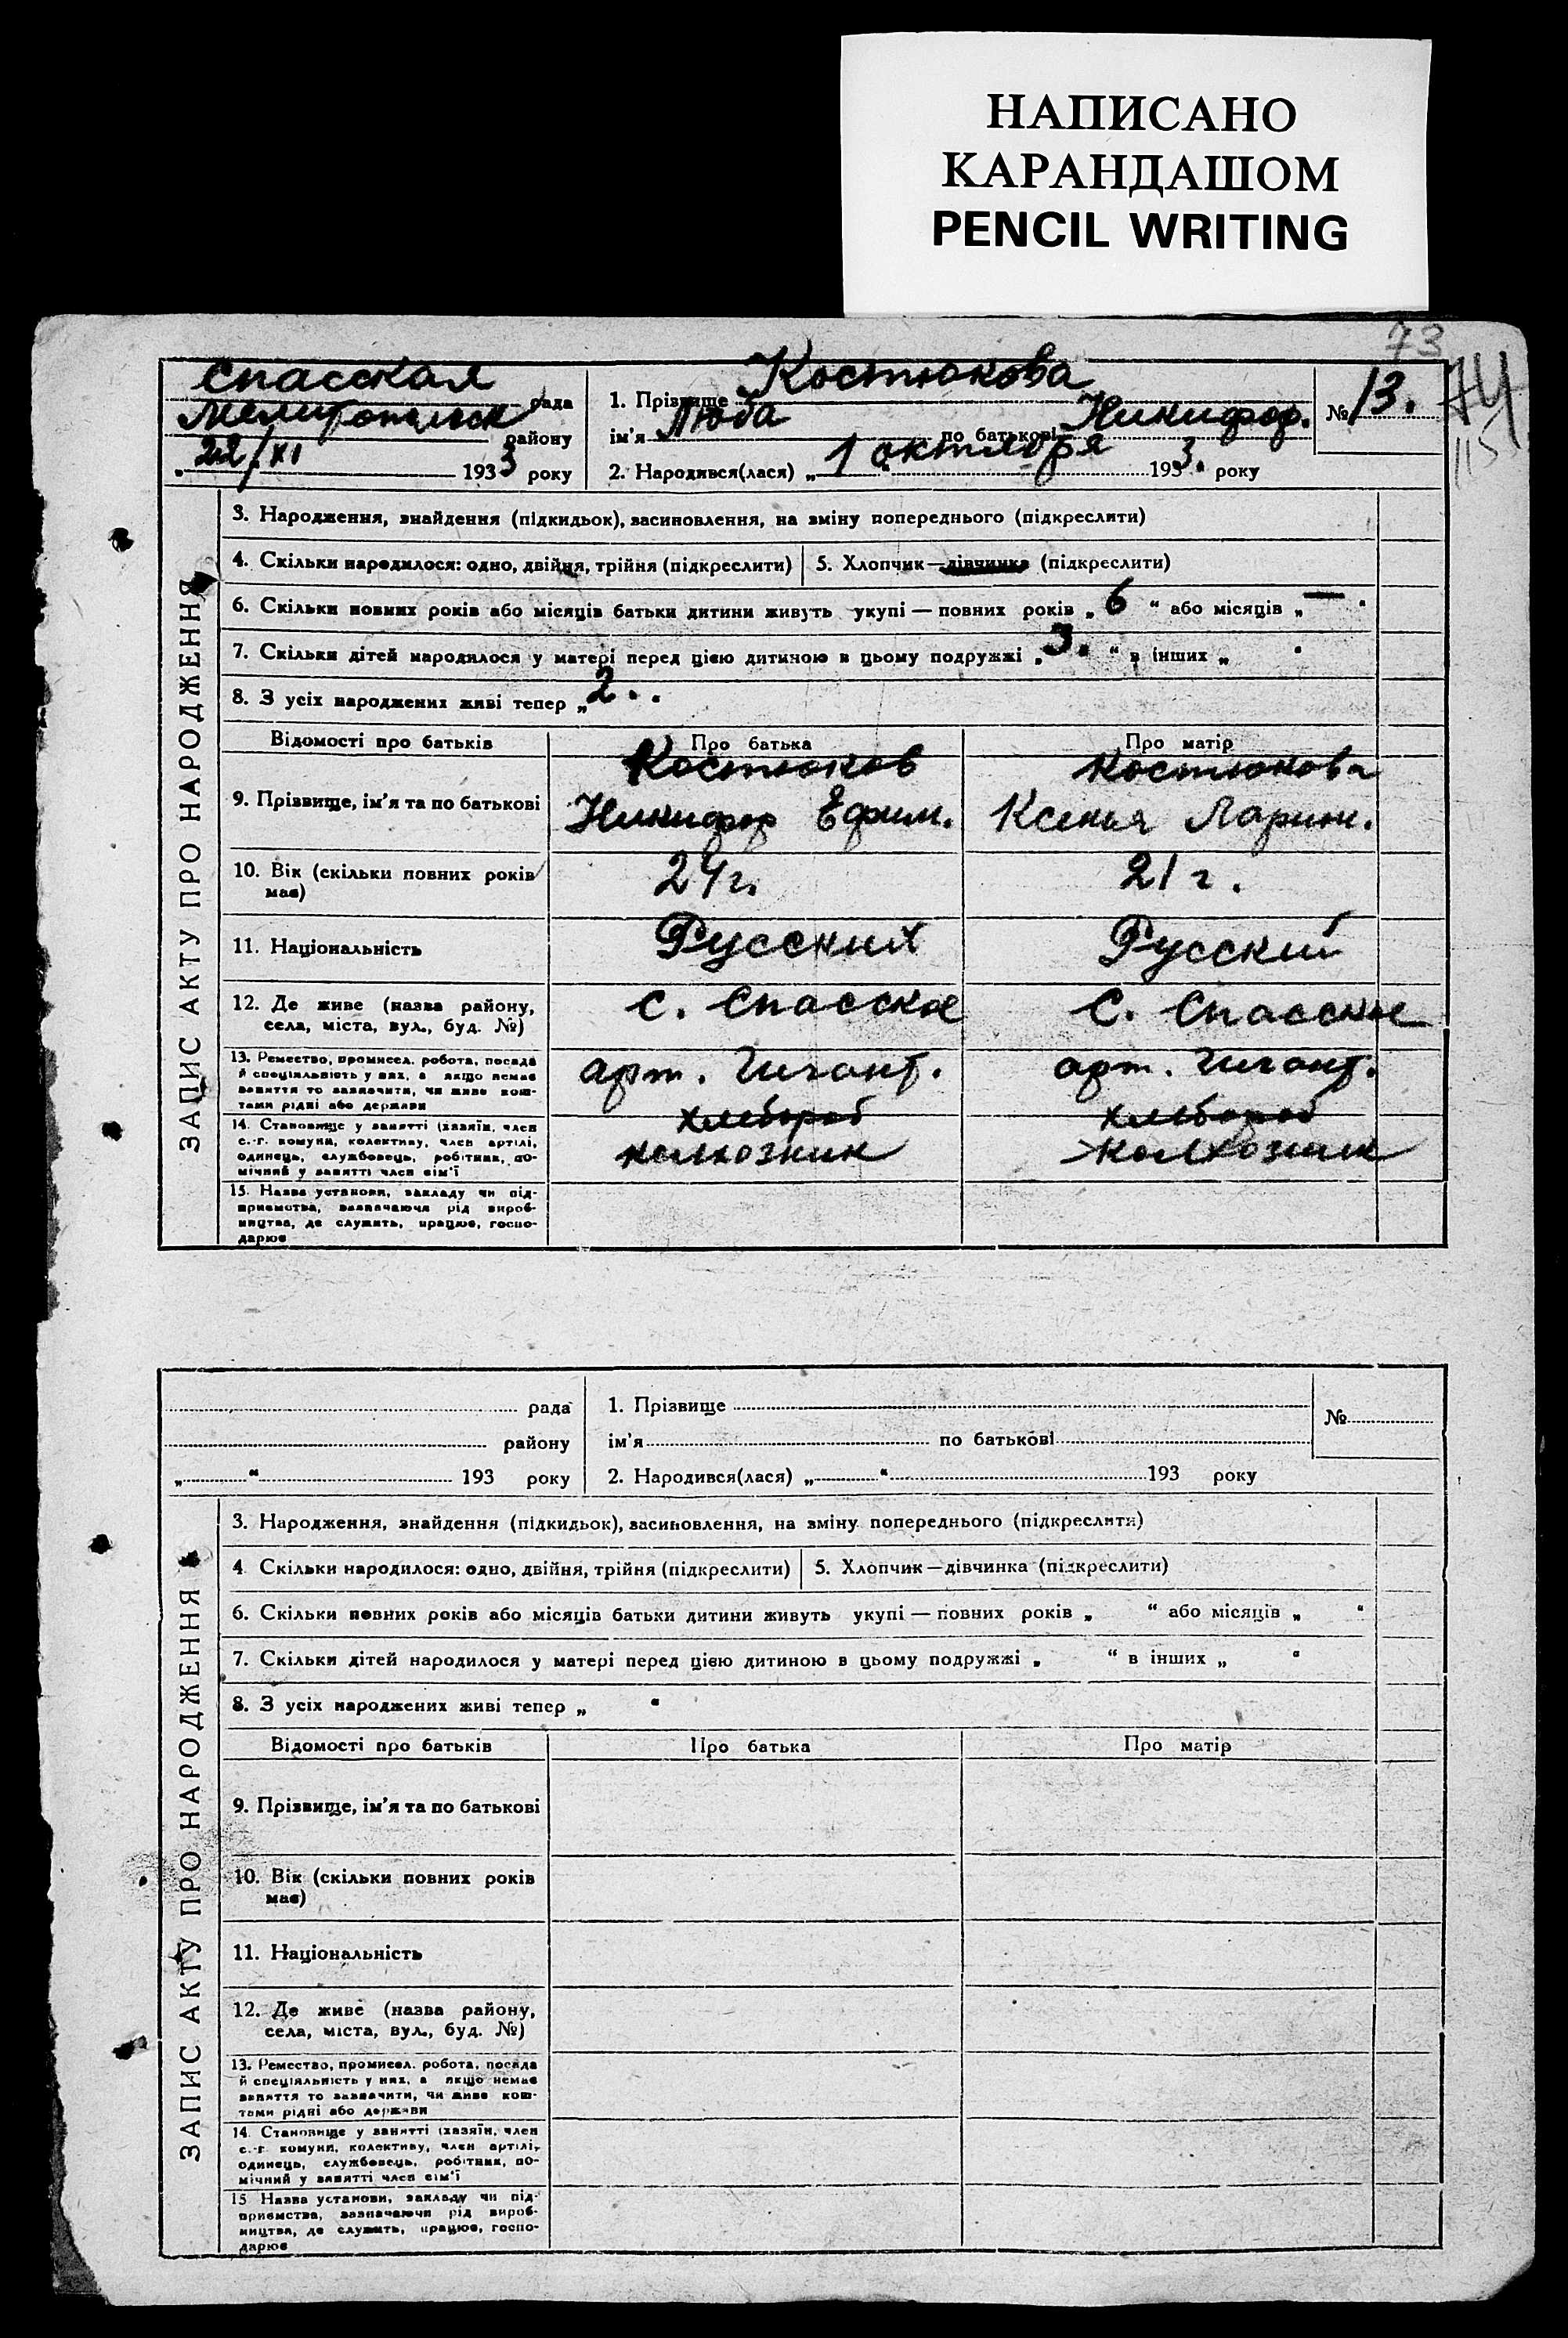 НАПИСАНО
КАРАНДАШОМ
PENCIL WRITING
73
74
115
Спасская рада
Мелитопольск району
„22/XI 1933 року
1. Прізвище Костюкова
ім'я Люба по батькові Никифор.
2. Народився(лася) „1 октября 1933. року
№ 13.
ЗАПИС АКТУ ПРО НАРОДЖЕННЯ
3. Народження, знайдення (підкидьок), засиновлення, на зміну попереднього (підкреслити)
4. Скільки народилося: одно, двійня, трійня (підкреслити) 5. Хлопчик—дівчинка (підкреслити)
6. Скільки повних років або місяців батьки дитини живуть укупі — повних років „6“ або місяців „—“
7. Скільки дітей народилося у матері перед цією дитиною в цьому подружжі „3.“ в інших „ “
8. З усіх народжених живі тепер „2..
Відомості про батьків Про батька Про матір
9. Прізвище, ім'я та по батькові Костюков Костюкова
Никифор Ефим. Ксенья Ларион.
10. Вік (скільки повних років має) 24г. 21 г.
11. Національність Русский Русский
12. Де живе (назва району, с. Спасское с. Спасское
села, міста, вул., буд. №)
13. Ремество, промисел. робота, посада арт. Гигант. арт. Гигант.
й спеціяльність у них, а якщо немає
заняття то зазначити, чи живе кош-
тами рідні або держави
хлебороб хлебороб
14. Становище у занятті (хазяїн, член колхозник колхозник
с.-г. комуни, колективу, член артілі,
одинець, службовець, робітник, по-
мічний у занятті член сім'ї
15. Назва установи, закладу чи під-
приємства, зазначаючи рід вироб-
ництва, де служить, працює, госпо-
дарює
рада
району
„ “ 193 року
1. Прізвище
ім'я по батькові
2. Народився(лася) „ “ 193 року
№
ЗАПИС АКТУ ПРО НАРОДЖЕННЯ
3. Народження, знайдення (підкидьок), засиновлення, на зміну попереднього (підкреслити)
4 Скільки народилося: одно, двійня, трійня (підкреслити) 5. Хлопчик—дівчинка (підкреслити)
6. Скільки повних років або місяців батьки дитини живуть укупі — повних років „ “ або місяців „ “
7. Скільки дітей народилося у матері перед цією дитиною в цьому подружжі „ “ в інших „ “
8. З усіх народжених живі тепер „ “
Відомості про батьків Про батька Про матір
9. Прізвище, ім'я та по батькові
10. Вік (скільки повних років
має)
11. Національність
12. Де живе (назва району,
села, міста, вул., буд. №)
13. Ремество, промисел. робота, посада
й спеціяльність у них, а якщо немає
заняття то зазначити, чи живе кош-
тами рідні або держави
14. Становище у занятті (хазяїн, член
с.-г. комуни, колективу, член артілі,
одинець, службовець, робітник, по-
мічний у занятті член сім'ї
15 Назва установи, закладу чи під-
приємства, зазначаючи рід вироб-
ництва, де служить, працює, госпо-
дарює